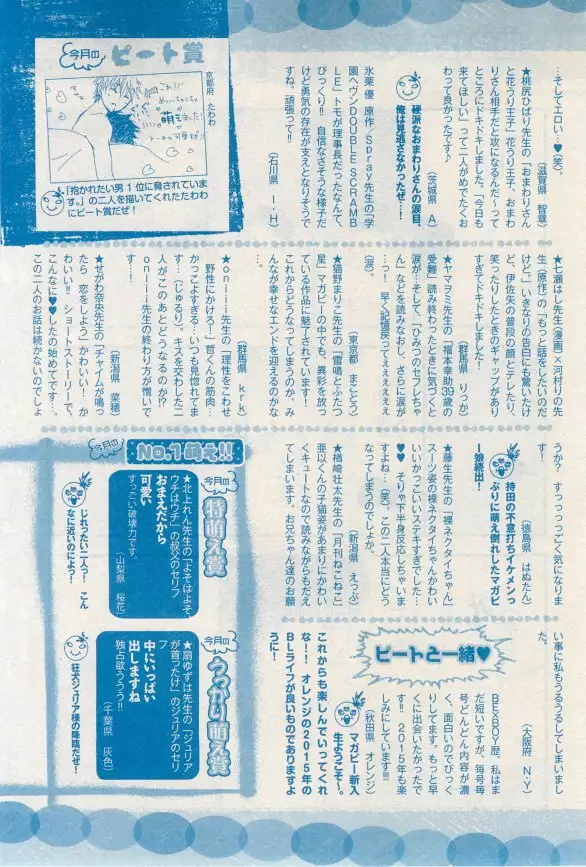 …そしてエロい…♥(笑)。
(滋賀県 智章)
★桃尻ひばり先生の「おまわりさん
と花うり王子」花うり王子、おまわ
りさん相手だと攻になるんだ〜って
ところにドキドキしました。「今日も
来てほしい」って二人がめでたくお
わって良かったです♪
(茨城県 A)
硬派なおまわりさんの涙目、
俺は見逃さなかったぜ…!
氷栗優 原作/Spray先生の「学
園ヘヴンDOUBLE SCRAMB
LE」トモが理事長だったなんて、
びっくり!! 自信なさそうな様子だ
けど勇気の存在が支えとなりそうで
すね。頑張って!!
(石川県 I・H)
今月のピート賞
京都府 たわわ
「抱かれたい男1位に脅されていま
す。」の二人を描いてくれたたわわ
にピート賞だぜ!
★七瀬はし先生(漫画)×河村りの先
生(原作)の「もっと話をしたいのだ
けど。」いきなりの告白にも驚いたけ
ど、伊佐矢の普段の顔とテレたり、
笑ったりしたときのギャップがあり
すぎてドキドキしました!
(群馬県 りっか)
★ヤマヲミ先生の「福本幸助39歳の
受難」読み終わったときに気づくと
涙が…そして、「ひみつのセフレちゃ
ん」などを読みなおし、さらに涙が
…っ! 早く記憶戻ってぇぇぇぇぇ
(涙)。
(東京都 まことっ)
★猫野まりこ先生の「雷鳴とふたつ
星」マガビーの中でも、異彩を放っ
ている作品に魅了されています!
これからどうなってしまうのか、み
んなが幸せなエンドを迎えるのか…。
(群馬県 krk)
★oniii先生の「理性をこわせ
野性にかけろ!」哲くんの筋肉…
かっこよすぎる…いつも見惚れてま
す…(じゅるり)。キスを交わした二
人がこのあとどうなるのか!?
oniii先生の終わり方が憎いで
す…!
(新潟県 菜穂)
★せがわ奈央先生の「チャイムが鳴っ
たら 恋をしよう」かわいい! か
わいい!! ショートストーリーで、
こんなに♥♥したの始めてです…。
この二人のお話は続かないのでしょ
うか? すっっっっっごく気になりま
す!
(徳島県 はぬたん)
持田の不意打ちイケメンっ
ぷりに萌え倒れしたマガビ
ー娘続出!
★藤生先生の「裸ネクタイちゃん」
スーツ姿の裸ネクタイちゃんかわい
いいかっこいいステキすぎでした…
♥♥ そりゃ下半身反応しちゃいま
すよね…(笑)、この二人本当にどう
なってしまうのでしょうか。
(新潟県 えっぷ)
★楢崎壮太先生の「月刊ねこねこ」
亜以くんの子猫姿があまりにかわい
くキュートなので読みながらもだえ
てしまいます。お兄ちゃん達のお願
い事に私もうるうるしてしまいまし
た。
(大阪府 N・Y)
ピートと一緒♥
BE×BOY歴、私はま
だ短いですが、毎号毎
号どんどん内容が濃
く、面白いのでびっく
りしてます。もっと早
くに出会いたかったで
す!! 2015年も楽
しみにしています!!!
(秋田県 オレンジ)
マガビー新入
生ようこそ〜♪。
これからも楽しんでいってくれ
な!! オレンジの2015年の
BLライフが良いものでありますよ
うに!
今月のNo.1萌え!!
今月の特萌え賞
★北上れん先生の「よそはよそ
ウチはウチ」の叔父のセリフ
おまえだから
可愛い
すっごい破壊力です。
(山梨県 桜花)
じれったい二人! こん
なに近いのによっ!
今月のうっかり萌え賞
★扇ゆずは先生の「ジュリア
が首ったけ」のジュリアのセリ
フ
中にいっぱい
出しますね
独占欲ううう!!
(千葉県 灰色)
狂犬ジュリア様の降臨だぜ!